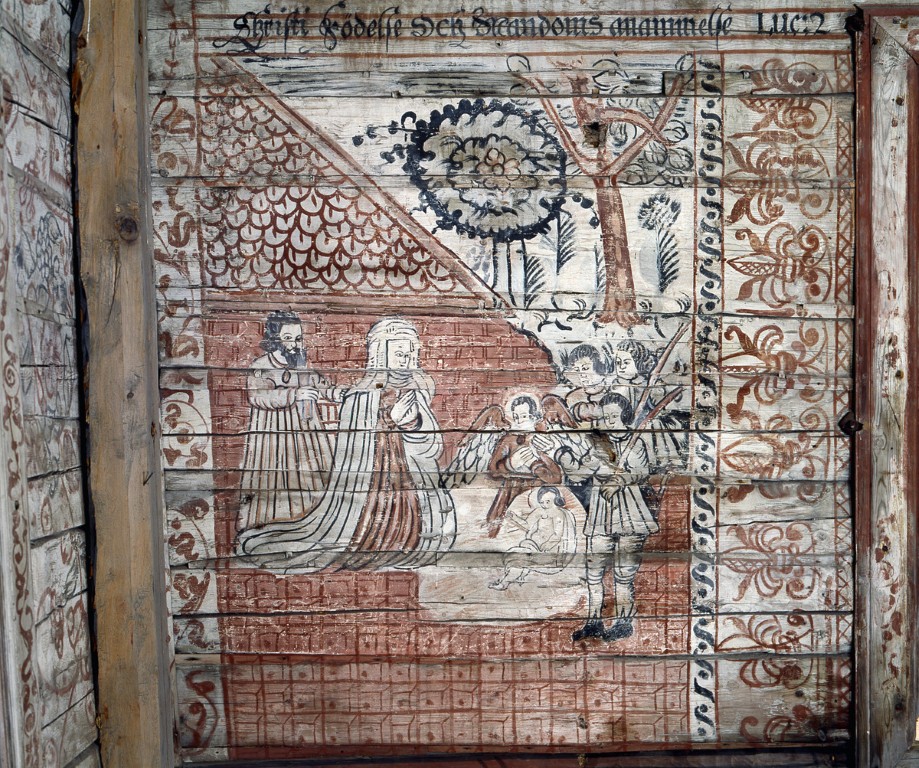 Christi Födelse Och Mandoms anammelse Luc: 2